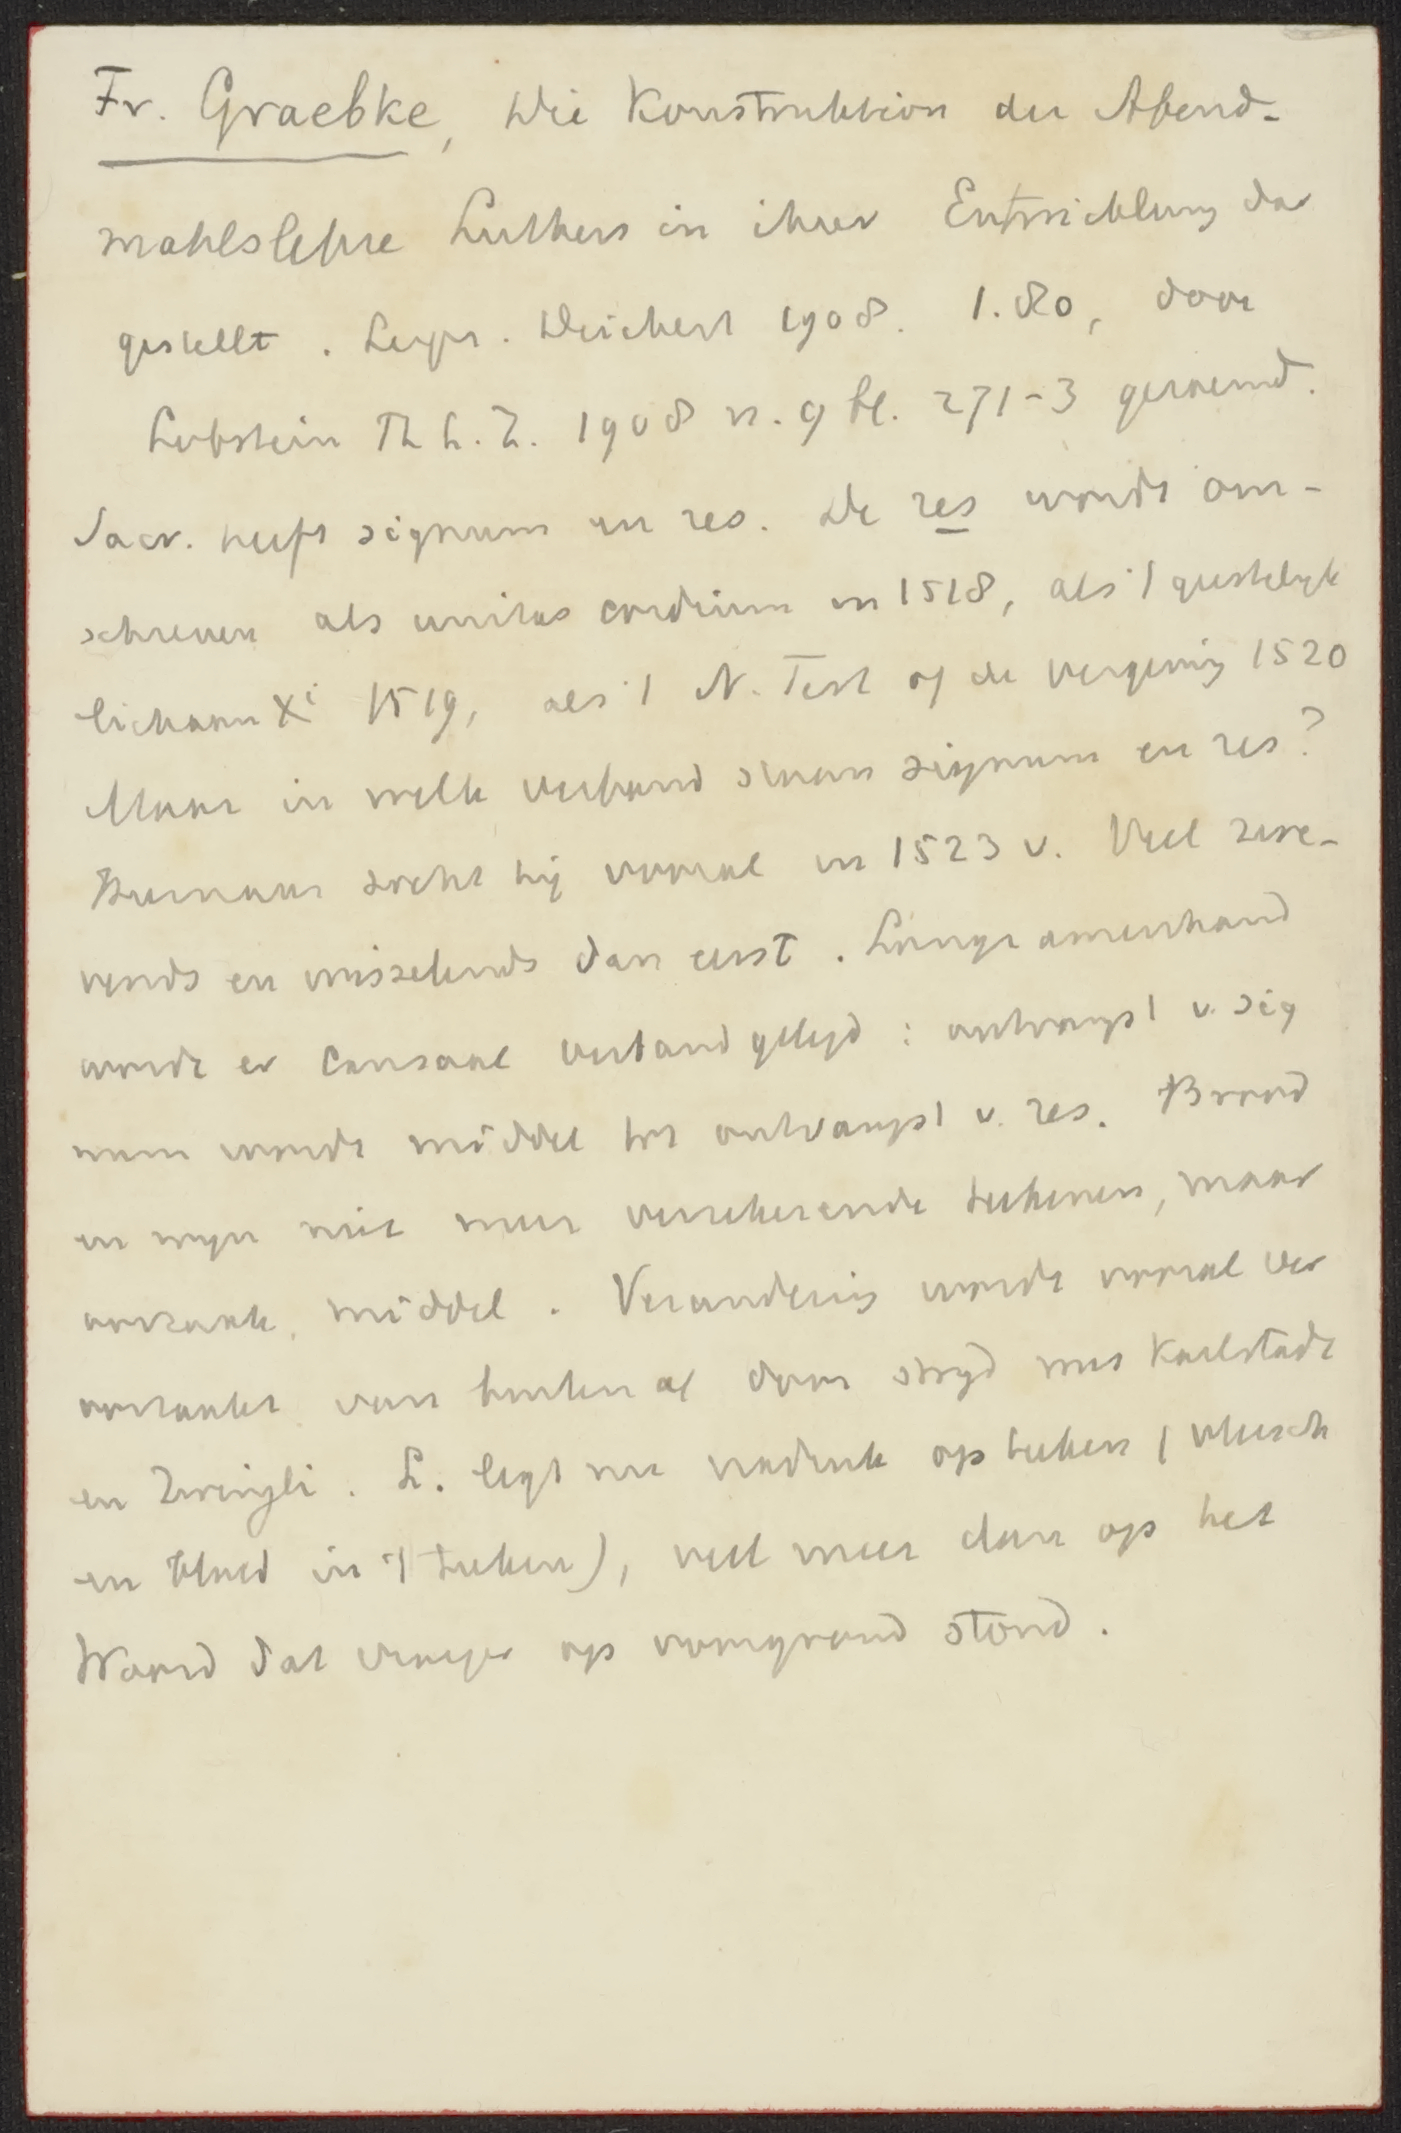 Fr. Graebke, Die Konstruktion der Abend-
mahlslehre Luthers in ihrer Entwicklung dar
gestellt. Leipz. Deichert 1908. 1.80, door
Lobstein Th L. Z. 1908 n. 9 bl. 271-3 geroemd.
Sacr. heeft signum en res. De res wordt om-
schreven als unitas cordium in 1518, als 't geestelyk
lichaam Xi 1519, als 't N. Test of de vergeving 1520
Maar in welk verband staan signum en res?
Daarnaar zocht hij vooral in 1523 v. Veel zwe-
vends en wisselends dan eerst. Langzamerhand
wordt er causaal verband gelegd: ontvangst v. sig
num wordt middel tot ontvangst v. res. Brood
en wyn niet meer verzekerende teekenen, maar
oorzaak, middel. Verandering wordt vooral ver
oorzaakt van buiten af door stryd met Karlstadt
en Zwingli. L. legt nu nadruk op teeken (vleesch
en bloed in 't teeken), veel meer dan op het
Woord dat vroeger op voorgrond stond.